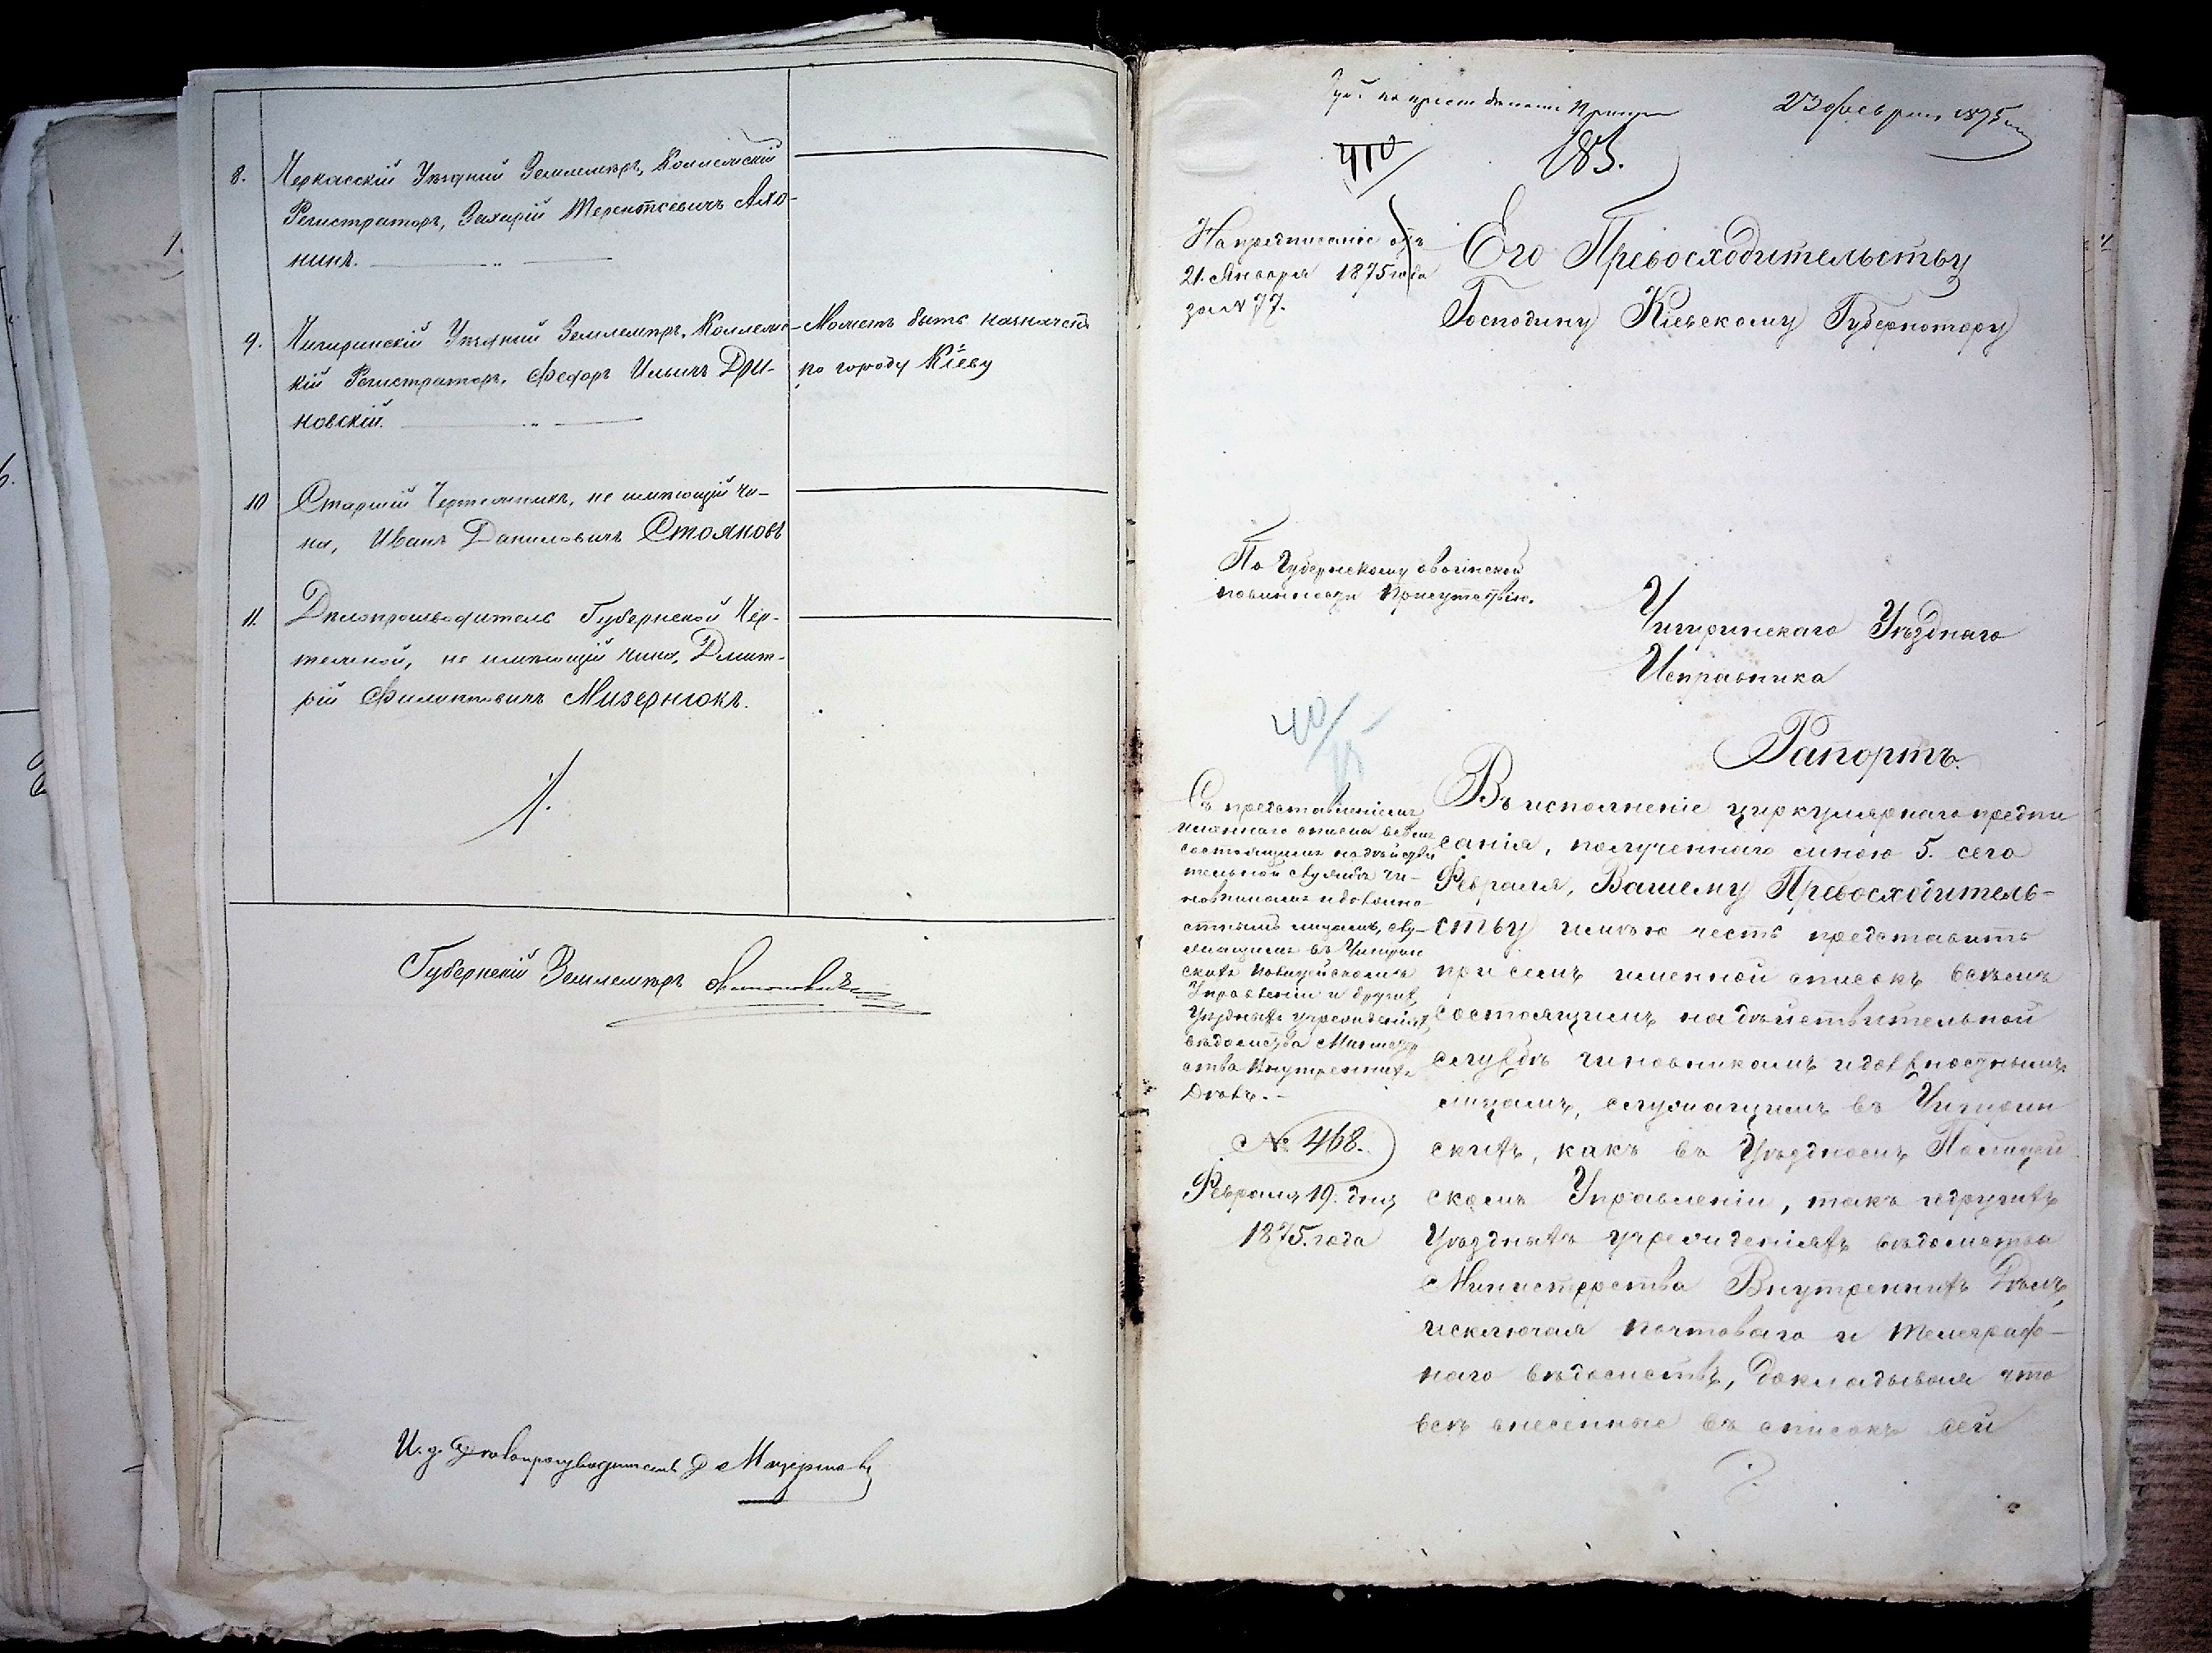 8. Черкасскій Уѣздный Землемѣръ, Коллежскій
Регистраторъ, Захарій Терентьевичъ Ало-
нинъ.
9. Чигиринскій Уѣздный Землемѣръ, Коллежс-
кій Регистраторъ, Федоръ Ильичъ Дри-
новскій.
Можетъ быть назначенъ
по городу Кіеву
10 Старшій Чертежникъ, не имѣющій чи-
на, Иванъ Даниловичъ Стояновъ
11. Дѣлопроизводитель Губернской Чер-
тежной, не имѣющій чина, Дмит-
рій Филипповичъ Мизернюкъ.
Губернскій Землемѣръ
И. д. Дѣлопроизводителя Д Мизернюкъ
23 февраля 1875
410
183.
На предписаніе отъ
21. Января 1875 года
за № 77.
Его Превосходительству
Господину Кіевскому Губернатору
По Губернскому о воинской
повинности Присутствію.
Чигиринскаго Уѣзднаго
Исправника
40/75
Рапортъ.
Съ представленіемъ
имяннаго списка всѣмъ
состоящимъ на дѣйстви
тельной службѣ чи-
новникамъ и должно-
стнымъ лицамъ, слу-
жащимъ въ Чигирин
скихъ Полицейскомъ
Управленіи и другихъ
Уѣздныхъ учрежденіяхъ
вѣдомства Министер
ства Внутреннихъ
Дѣлъ. -
№ 468.
Февраля 19. дня
1875. года
Въ исполненіе циркулярнаго предпи
санія, полученнаго мною 5. сего
Февраля, Вашему Превосходитель-
ству имѣю честь представить
при семъ именной списокъ всѣмъ
состоящимъ на дѣйствительной
службѣ чиновникамъ и должностнымъ
лицамъ, служащимъ въ Чигирин
скихъ, какъ въ Уѣздномъ Полицей
скомъ Управленіи, такъ и другихъ
Уѣздныхъ учрежденіяхъ вѣдомства
Министерства Внутреннихъ Дѣлъ,
исключая почтоваго и телеграф-
наго вѣдомствъ, докладывая что
всѣ внесенные въ списокъ сей